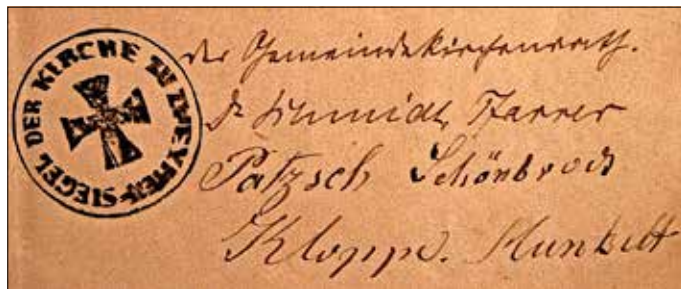 SIEGEL DER KIRCHE ZU ZWEYMEN
der Gemeindekirchenrath.
Dr Schmidt, Pfarrer
Patzsch Schönbrodt
Kloppe. Hunkelt